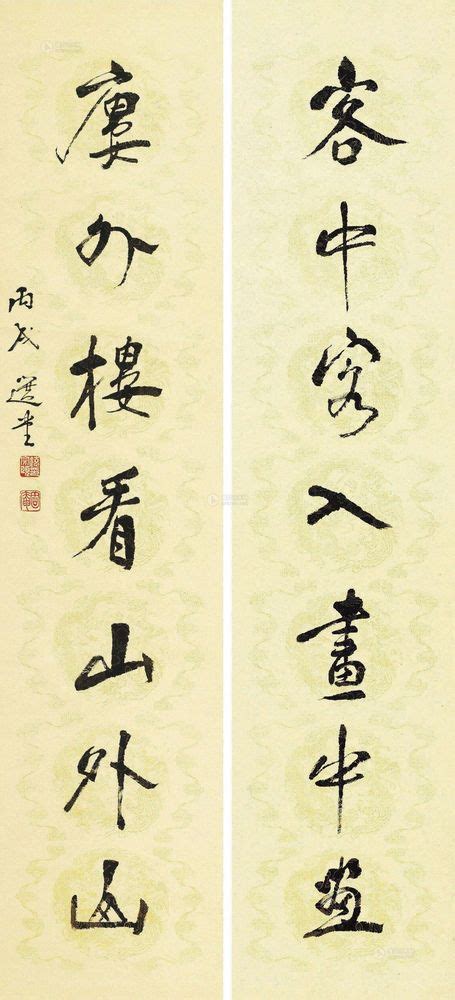 客中客入畫中畫
廔外樓看山外山
丙戌 選堂